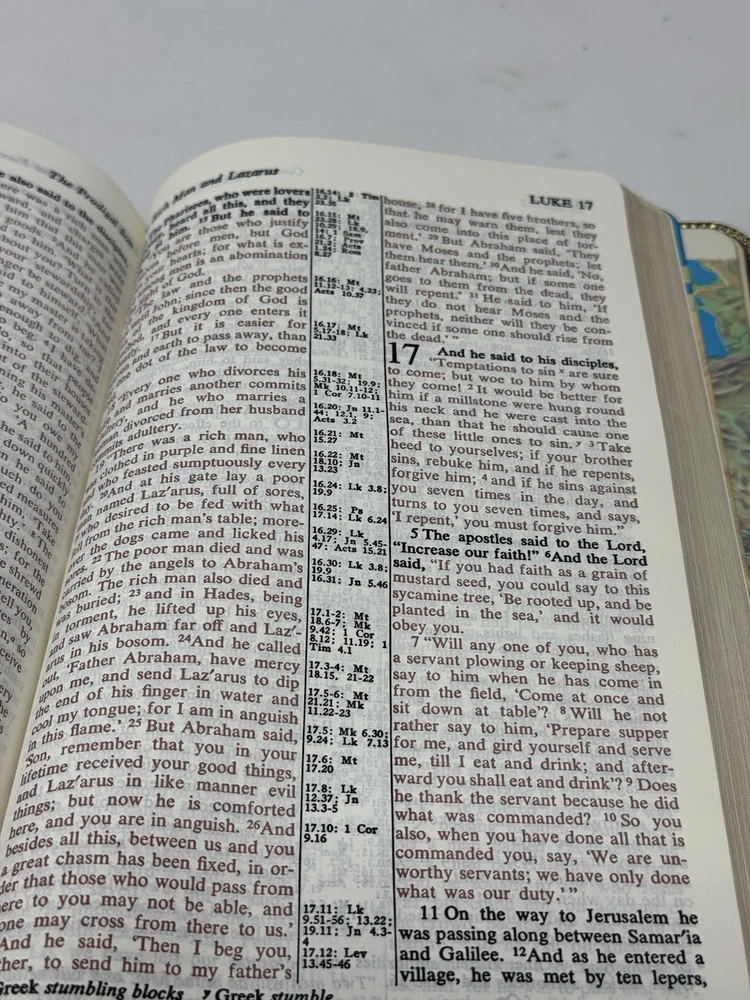 The Prodigal
also said to the
Man and Lazarus
LUKE 17
Pharisees, who were lovers
heard all this, and they
at him. 15 But he said to
are those who justify
before men, but God
your hearts; for what is ex-
men is an abomination
of God.
law and the prophets
John; since then the good
the kingdom of God is
and every one enters it
17 But it is easier for
and earth to pass away, than
one dot of the law to become
"Every one who divorces his
and marries another commits
and he who marries a
divorced from her husband
adultery.
"There was a rich man, who
clothed in purple and fine linen
who feasted sumptuously every
20 And at his gate lay a poor
named Laz′arus, full of sores,
who desired to be fed with what
from the rich man's table; more-
the dogs came and licked his
22 The poor man died and was
carried by the angels to Abraham's
bosom. The rich man also died and
was buried; 23 and in Hades, being
torment, he lifted up his eyes,
and saw Abraham far off and Laz′-
arus in his bosom. 24 And he called
out, 'Father Abraham, have mercy
upon me, and send Laz′arus to dip
the end of his finger in water and
cool my tongue; for I am in anguish
in this flame.' 25 But Abraham said,
'Son, remember that you in your
lifetime received your good things,
and Laz′arus in like manner evil
things; but now he is comforted
here, and you are in anguish. 26 And
besides all this, between us and you
a great chasm has been fixed, in or-
der that those who would pass from
here to you may not be able, and
one may cross from there to us.'
And he said, 'Then I beg you,
to send him to my father's
Greek stumbling blocks y Greek stumble
16.15: Mt
23.28: Lk
16.16: Mt
11.12-13; 4.23;
Acts 10.37
16.17: Mt
5.17-18; Lk
21.33
16.18: Mt
5.31-32; 19.9;
Mk 10.11-12;
1 Cor 7.10-11
16.20: Jn 11.1-
44; 12.1, 9;
Acts 3.2
16.21: Mt
15.27
16.22: Mt
18.10; Jn
13.23
16.24: Lk 3.8;
19.9
16.25: Ps
17.14; Lk 6.24
16.29: Lk
4.17; Jn 5.45-
47; Acts 15.21
16.30: Lk 3.8;
19.9
16.31: Jn 5.46
17.1-2: Mt
18.6-7; Mk
9.42; 1 Cor
8.12; 11.19; 1
Tim 4.1
17.3-4: Mt
18.15, 21-22
17.5-6: Mt
21.21; Mk
11.22-23
17.5: Mk 6.30;
9.24; Lk 7.13
17.6: Mt
17.20
17.8: Lk
12.37; Jn
13.3-5
17.10: 1 Cor
9.16
17.11: Lk
9.51-56; 13.22;
19.11; Jn 4.3-
4
17.12: Lev
13.45-46
house, 28 for I have five brothers, so
that he may warn them, lest they
also come into this place of tor-
ment.' 29 But Abraham said, 'They
have Moses and the prophets; let
them hear them.' 30 And he said, 'No,
father Abraham; but if some one
goes to them from the dead, they
will repent.' 31 He said to him, 'If
they do not hear Moses and the
prophets, neither will they be con-
vinced if some one should rise from
the dead.'"
17 And he said to his disciples,
"Temptations to sin x are sure
to come; but woe to him by whom
they come! 2 It would be better for
him if a millstone were hung round
his neck and he were cast into the
sea, than that he should cause one
of these little ones to sin. y 3 Take
heed to yourselves; if your brother
sins, rebuke him, and if he repents,
forgive him; 4 and if he sins against
you seven times in the day, and
turns to you seven times, and says,
'I repent,' you must forgive him."
5 The apostles said to the Lord,
"Increase our faith!" 6 And the Lord
said, "If you had faith as a grain of
mustard seed, you could say to this
sycamine tree, 'Be rooted up, and be
planted in the sea,' and it would
obey you.
7 "Will any one of you, who has
a servant plowing or keeping sheep,
say to him when he has come in
from the field, 'Come at once and
sit down at table'? 8 Will he not
rather say to him, 'Prepare supper
for me, and gird yourself and serve
me, till I eat and drink; and after-
ward you shall eat and drink'? 9 Does
he thank the servant because he did
what was commanded? 10 So you
also, when you have done all that is
commanded you, say, 'We are un-
worthy servants; we have only done
what was our duty.'"
11 On the way to Jerusalem he
was passing along between Samar′ia
and Galilee. 12 And as he entered a
village, he was met by ten lepers,